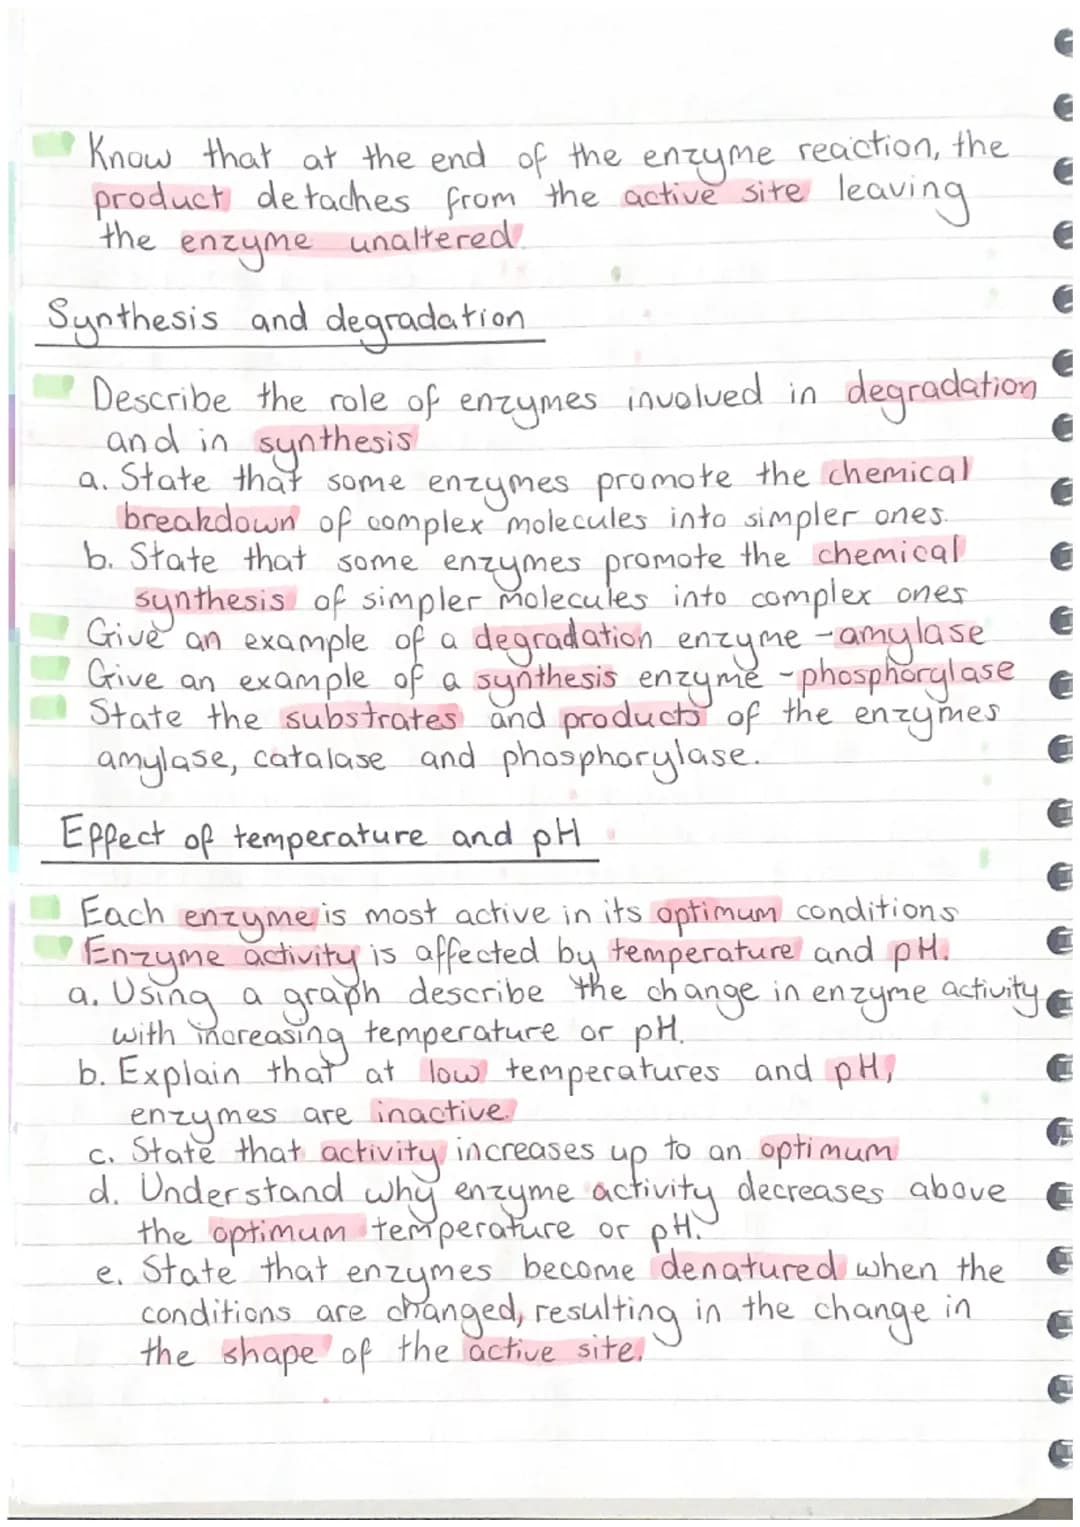 Know that at the end of the enzyme reaction, the
product detaches from the active site leaving
the enzyme unaltered.
Synthesis and degradation
Describe the role of enzymes involved in degradation
and in synthesis
a. State that some enzymes promote the chemical
breakdown of complex molecules into simpler ones.
b. State that some enzymes promote the chemical
synthesis of simpler molecules into complex ones
Give an example of a degradation enzyme - amylase
Give an example of a synthesis enzyme - phosphorylase
State the substrates and products of the enzymes
amylase, catalase and phosphorylase.
Effect of temperature and pH
Each enzyme is most active in its optimum conditions
Enzyme activity is affected by temperature and pH.
a. Using a graph describe the change in enzyme activity
with increasing temperature or pH.
b. Explain that at low temperatures and pH,
enzymes are inactive.
c. State that activity increases up to an optimum
d. Understand why enzyme activity decreases above
the optimum temperature or pH.
e. State that enzymes become denatured when the
conditions are changed, resulting in the change in
the shape of the active site.